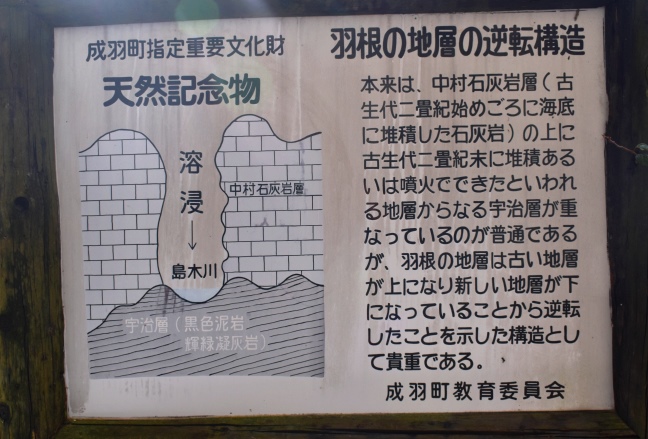 成羽町指定重要文化財
天然記念物
溶浸
中村石灰岩層
島木川
宇治層（黒色泥岩
輝緑凝灰岩）
羽根の地層の逆転構造
本来は、中村石灰岩層（古
生代二畳紀始めごろに海底
に堆積した石灰岩）の上に
古生代二畳紀末に堆積ある
いは噴火でできたといわれ
る地層からなる宇治層が重
なっているのが普通である
が、羽根の地層は古い地層
が上になり新しい地層が下
になっていることから逆転
したことを示した構造とし
て貴重である。
成羽町教育委員会